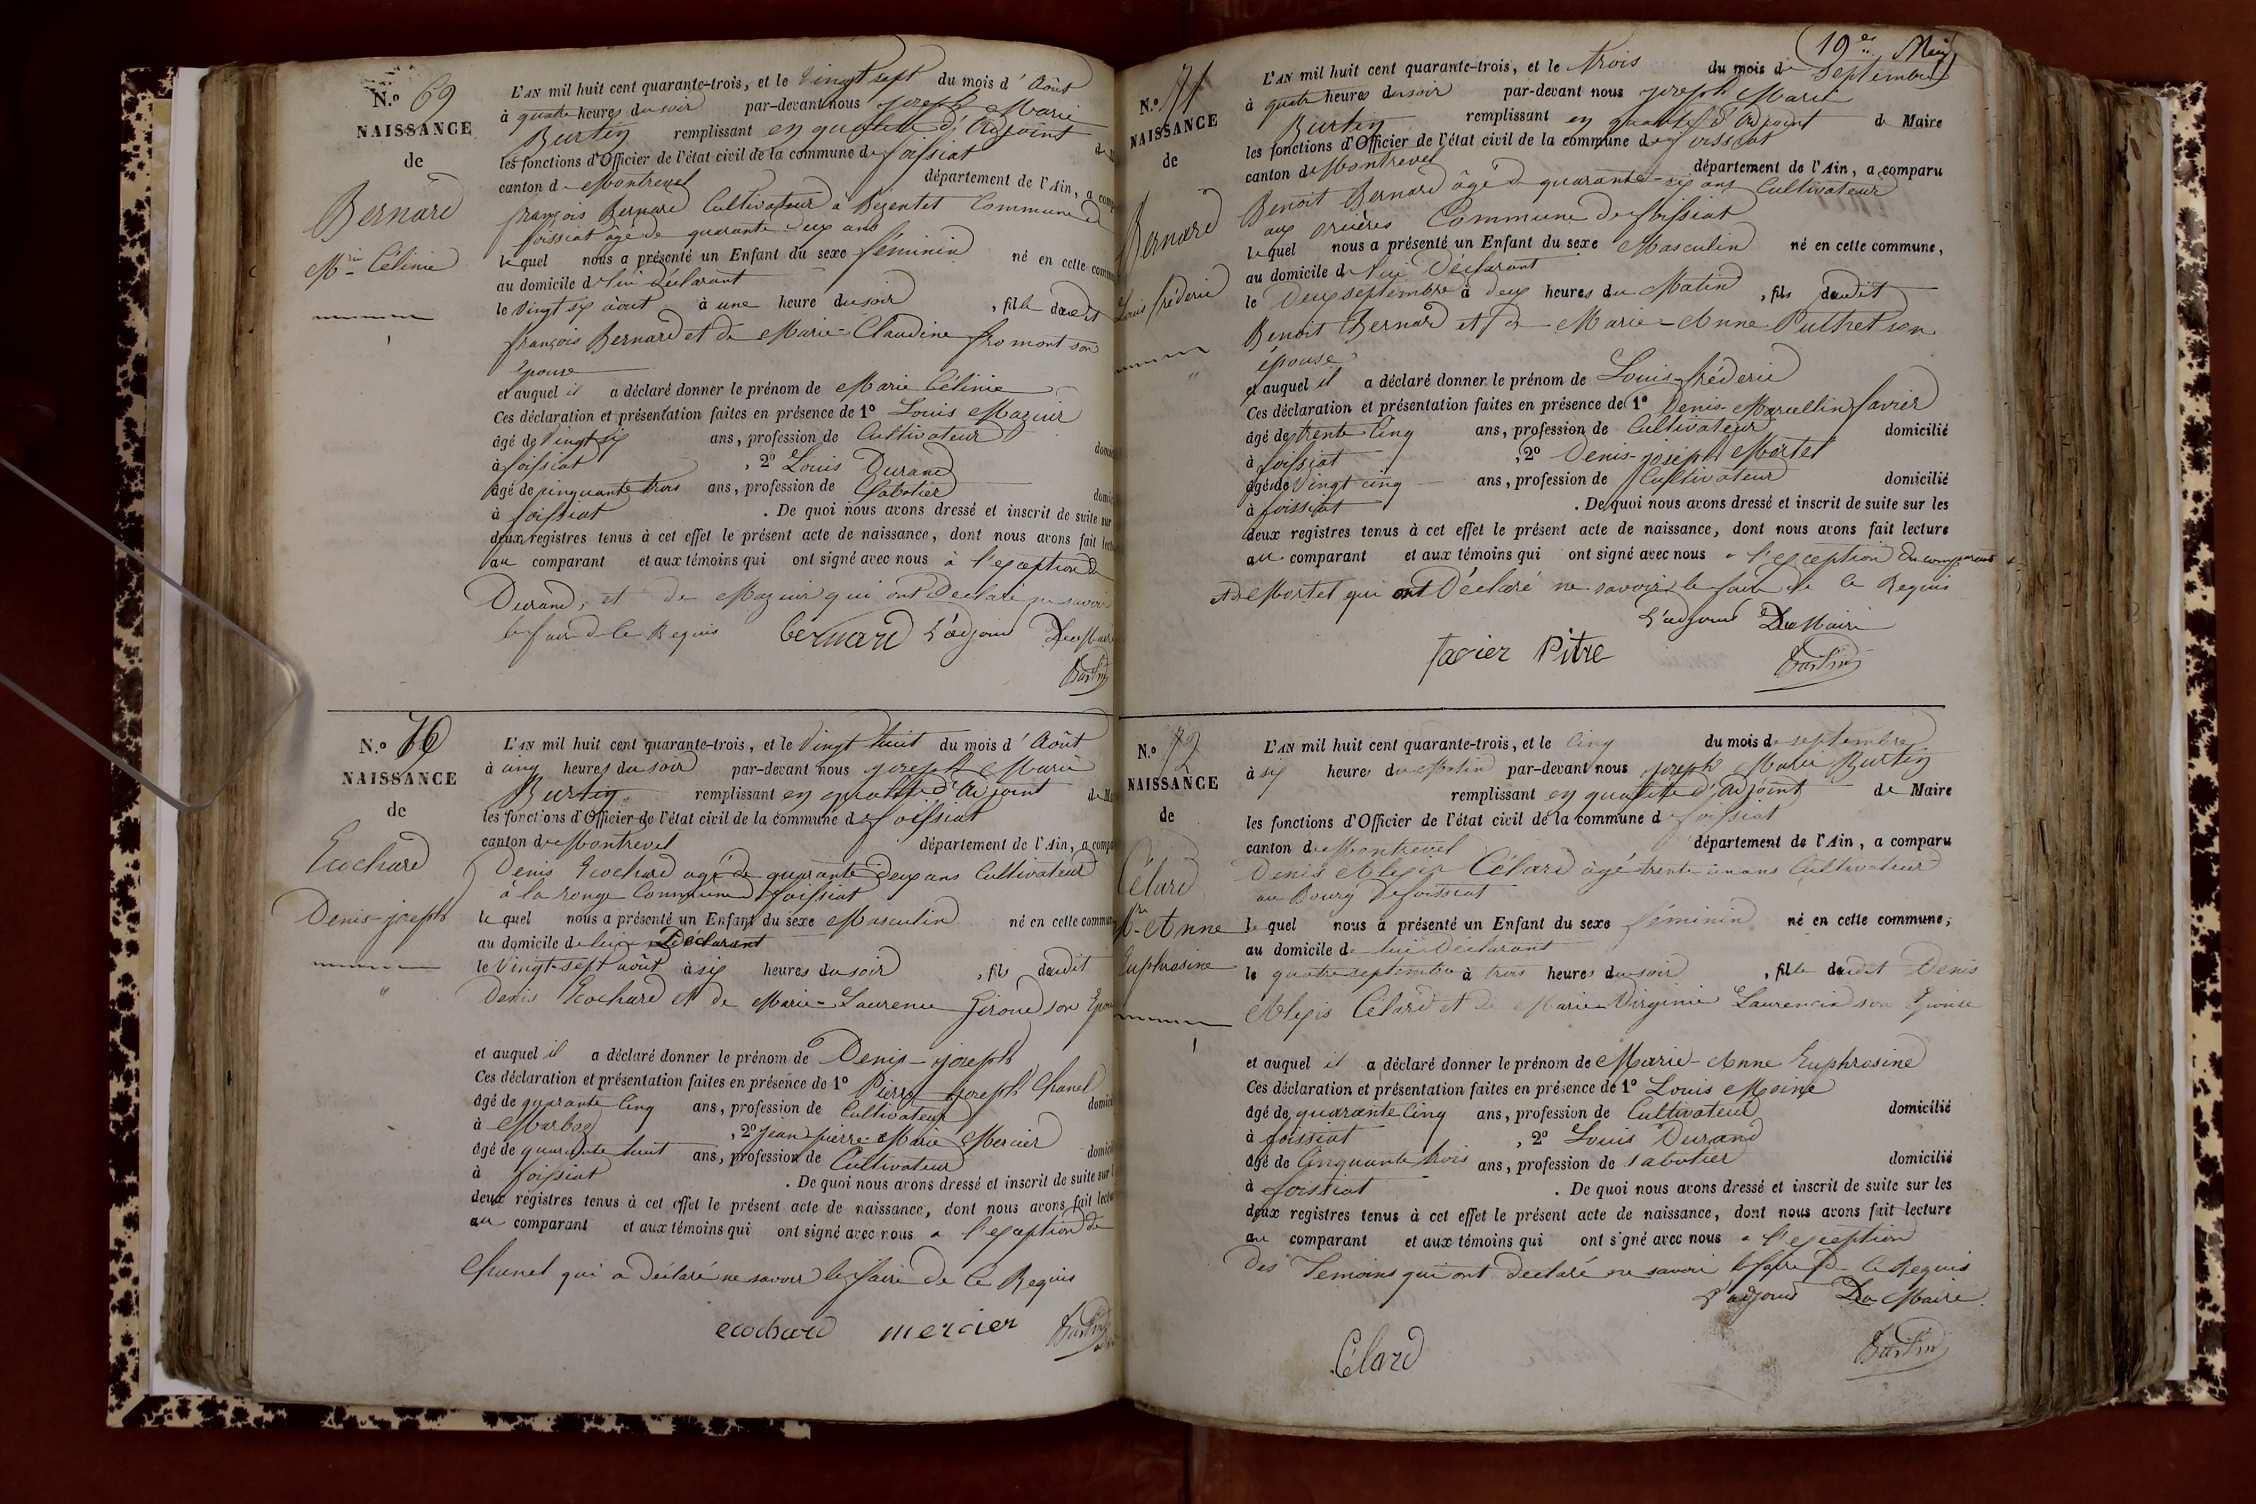 N.º 69
NAISSANCE
de
Bernard
M.rie Célinie
L'AN mil huit cent quarante-trois, et le vingt sept du mois d'Août
à quatre heures du soir par-devant nous joseph Marie
Burtin remplissant en qualité d'Adjoint de
les fonctions d'Officier de l'état civil de la commune de foissiat
canton de Montrevel département de l'Ain, a comp
françois Bernard Cultivateur à Bezentet Commune de
foissiat âgé de quarante deux ans
lequel nous a présenté un Enfant du sexe féminin né en cette comm
au domicile de lui déclarant
le vingt six août à une heure du soir, fille dudit
françois Bernard et de Marie-Claudine fromont son
épouse
et auquel il a déclaré donner le prénom de Marie Célinie
Ces déclaration et présentation faites en présence de 1º Louis Mazuir
âgé de vingt six ans, profession de Cultivateur domi
à foissiat, 2º Louis Durand
âgé de cinquante trois ans, profession de Sabotier domi
à foissiat. De quoi nous avons dressé et inscrit de suite sur
deux registres tenus à cet effet le présent acte de naissance, dont nous avons fait lect
au comparant et aux témoins qui ont signé avec nous à l'exception de
Durand, et de Mazuir qui ont Déclaré ne savoir
le faire de ce Requis bernard L'adjoint De Maire
Burtin
N.º 70
NAISSANCE
de
Ecochard
Denis-joseph
L'AN mil huit cent quarante-trois, et le vingt huit du mois d'Août
à cinq heures du soir par-devant nous joseph Marie
Burtin remplissant en qualité d'Adjoint de Ma
les fonctions d'Officier de l'état civil de la commune de foissiat
canton de Montrevel département de l'Ain, a comp
Denis Ecochard âgé de quarante deux ans Cultivateur
à la ronge Commune de foissiat
lequel nous a présenté un Enfant du sexe Masculin né en cette commun
au domicile de lui Déclarant
le vingt-sept août à six heures du soir, fils dudit
Denis Ecochard et de Marie-Laurence Giroud son Epou
et auquel il a déclaré donner le prénom de Denis-joseph
Ces déclaration et présentation faites en présence de 1º Pierre joseph Chanel
âgé de quarante cinq ans, profession de Cultivateur domici
à Marboz, 2º jean-pierre-Marie Mercier
âgé de quarante huit ans, profession de Cultivateur domici
à foissiat. De quoi nous avons dressé et inscrit de suite sur l
deux registres tenus à cet effet le présent acte de naissance, dont nous avons fait lectu
au comparant et aux témoins qui ont signé avec nous à l'exception de
Chanel qui a déclaré ne savoir le faire de ce Requis
ecochard mercier Burtin
19es
N.º 71
NAISSANCE
de
Bernard
Louis fréderic
L'AN mil huit cent quarante-trois, et le trois du mois de septembre
à quatre heures du soir par-devant nous joseph Marie
Burtin remplissant en qualité d'Adjoint de Maire
les fonctions d'Officier de l'état civil de la commune de foissiat
canton de Montrevel département de l'Ain, a comparu
Benoit Bernard âgé de quarante-six ans Cultivateur
aux Commune de foissiat
lequel nous a présenté un Enfant du sexe Masculin né en cette commune,
au domicile de lui Déclarant
le Deux septembre à deux heures du Matin, fils dudit
Benoit Bernard et de Marie-Anne Puthet son
épouse
et auquel il a déclaré donner le prénom de Louis-fréderic
Ces déclaration et présentation faites en présence de 1º Denis-Marcellin favier
âgé de trente Cinq ans, profession de Cultivateur domicilié
à foissiat, 2º Denis-joseph Mortel
âgé de vingt cinq ans, profession de Cultivateur domicilié
à foissiat. De quoi nous avons dressé et inscrit de suite sur les
deux registres tenus à cet effet le présent acte de naissance, dont nous avons fait lecture
au comparant et aux témoins qui ont signé avec nous à l'exception du comparant
et de Mortel qui ont Déclaré ne savoir le faire de ce Requis
L'adjoint De Maire
favier Pitre Burtin
N.º 72
NAISSANCE
de
Célard
M.rie Anne
Euphrasine
L'AN mil huit cent quarante-trois, et le Cinq du mois de septembre
à six heures du Matin par-devant nous joseph Marie Burtin
remplissant en qualité d'Adjoint de Maire
les fonctions d'Officier de l'état civil de la commune de foissiat
canton de Montrevel département de l'Ain, a comparu
Denis Alexis Célard âgé trente un ans Cultivateur
au Bourg de foissiat
lequel nous a présenté un Enfant du sexe féminin né en cette commune,
au domicile de lui Déclarant
le quatre septembre à trois heures du soir, fille dudit Denis
Alexis Célard et de Marie Virginie Laurencin son Epouse
et auquel il a déclaré donner le prénom de Marie-Anne Euphrasine
Ces déclaration et présentation faites en présence de 1º Louis Moine
âgé de quarante Cinq ans, profession de Cultivateur domicilié
à foissiat, 2º Louis Durand
âgé de Cinquante trois ans, profession de sabotier domicilié
à foissiat. De quoi nous avons dressé et inscrit de suite sur les
deux registres tenus à cet effet le présent acte de naissance, dont nous avons fait lecture
au comparant et aux témoins qui ont signé avec nous à l'exception
Des Témoins qui ont déclaré ne savoir le faire de ce Requis
L'adjoint De Maire
Célard Burtin